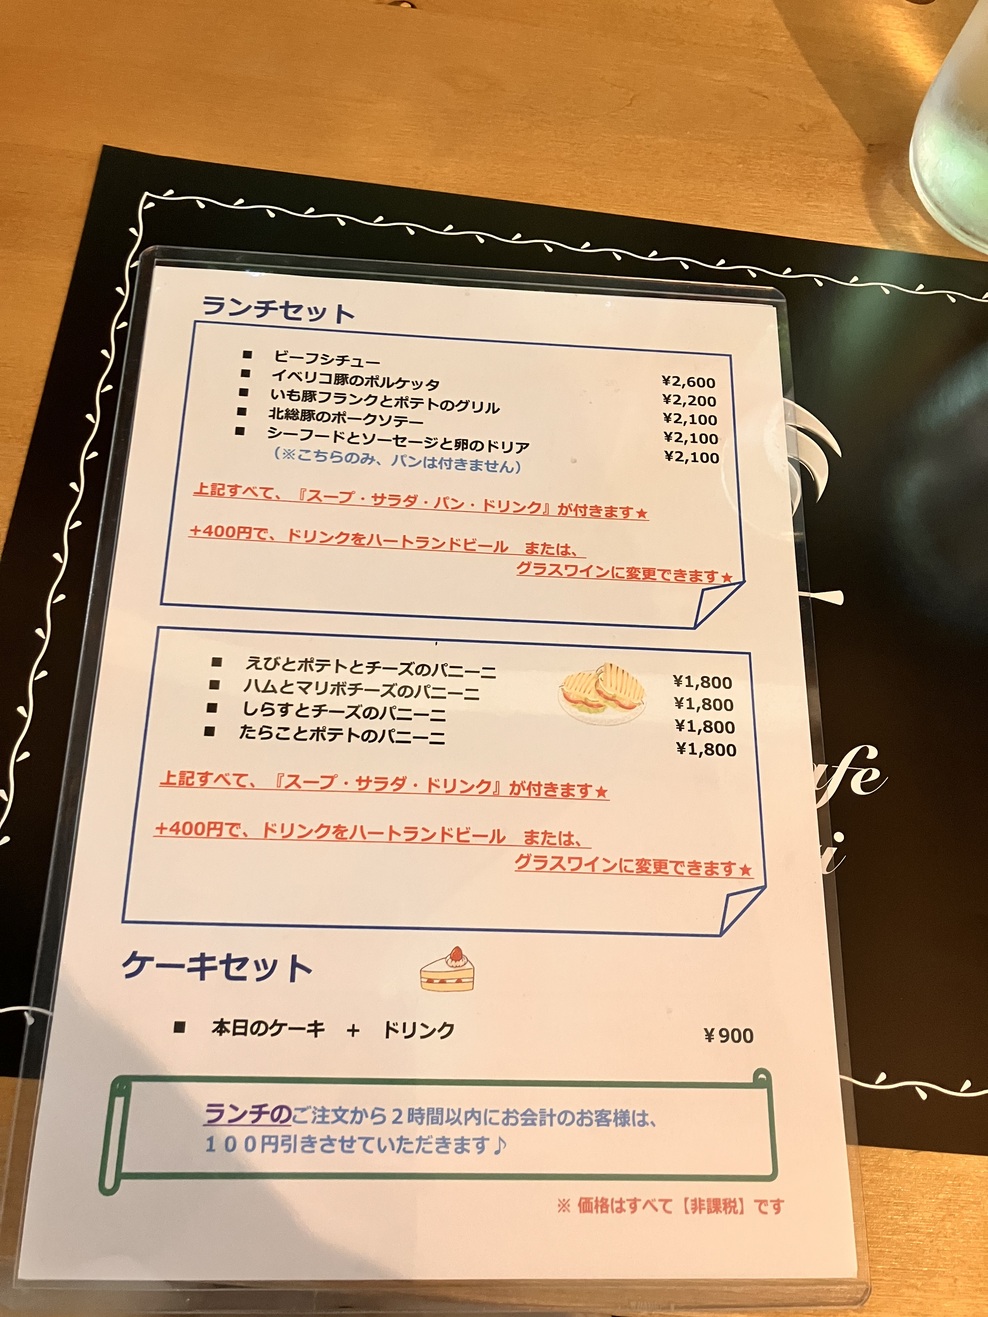 ランチセット
■ ビーフシチュー ¥2,600
■ イベリコ豚のポルケッタ ¥2,200
■ いも豚フランクとポテトのグリル ¥2,100
■ 北総豚のポークソテー ¥2,100
■ シーフードとソーセージと卵のドリア ¥2,100
（※こちらのみ、パンは付きません）
上記すべて、『スープ・サラダ・パン・ドリンク』が付きます★
+400円で、ドリンクをハートランドビール　または、
グラスワインに変更できます★
■ えびとポテトとチーズのパニーニ ¥1,800
■ ハムとマリボチーズのパニーニ ¥1,800
■ しらすとチーズのパニーニ ¥1,800
■ たらことポテトのパニーニ ¥1,800
上記すべて、『スープ・サラダ・ドリンク』が付きます★
+400円で、ドリンクをハートランドビール　または、
グラスワインに変更できます★
ケーキセット
■ 本日のケーキ　+　ドリンク ¥900
ランチのご注文から２時間以内にお会計のお客様は、
１００円引きさせていただきます♪
※ 価格はすべて【非課税】です